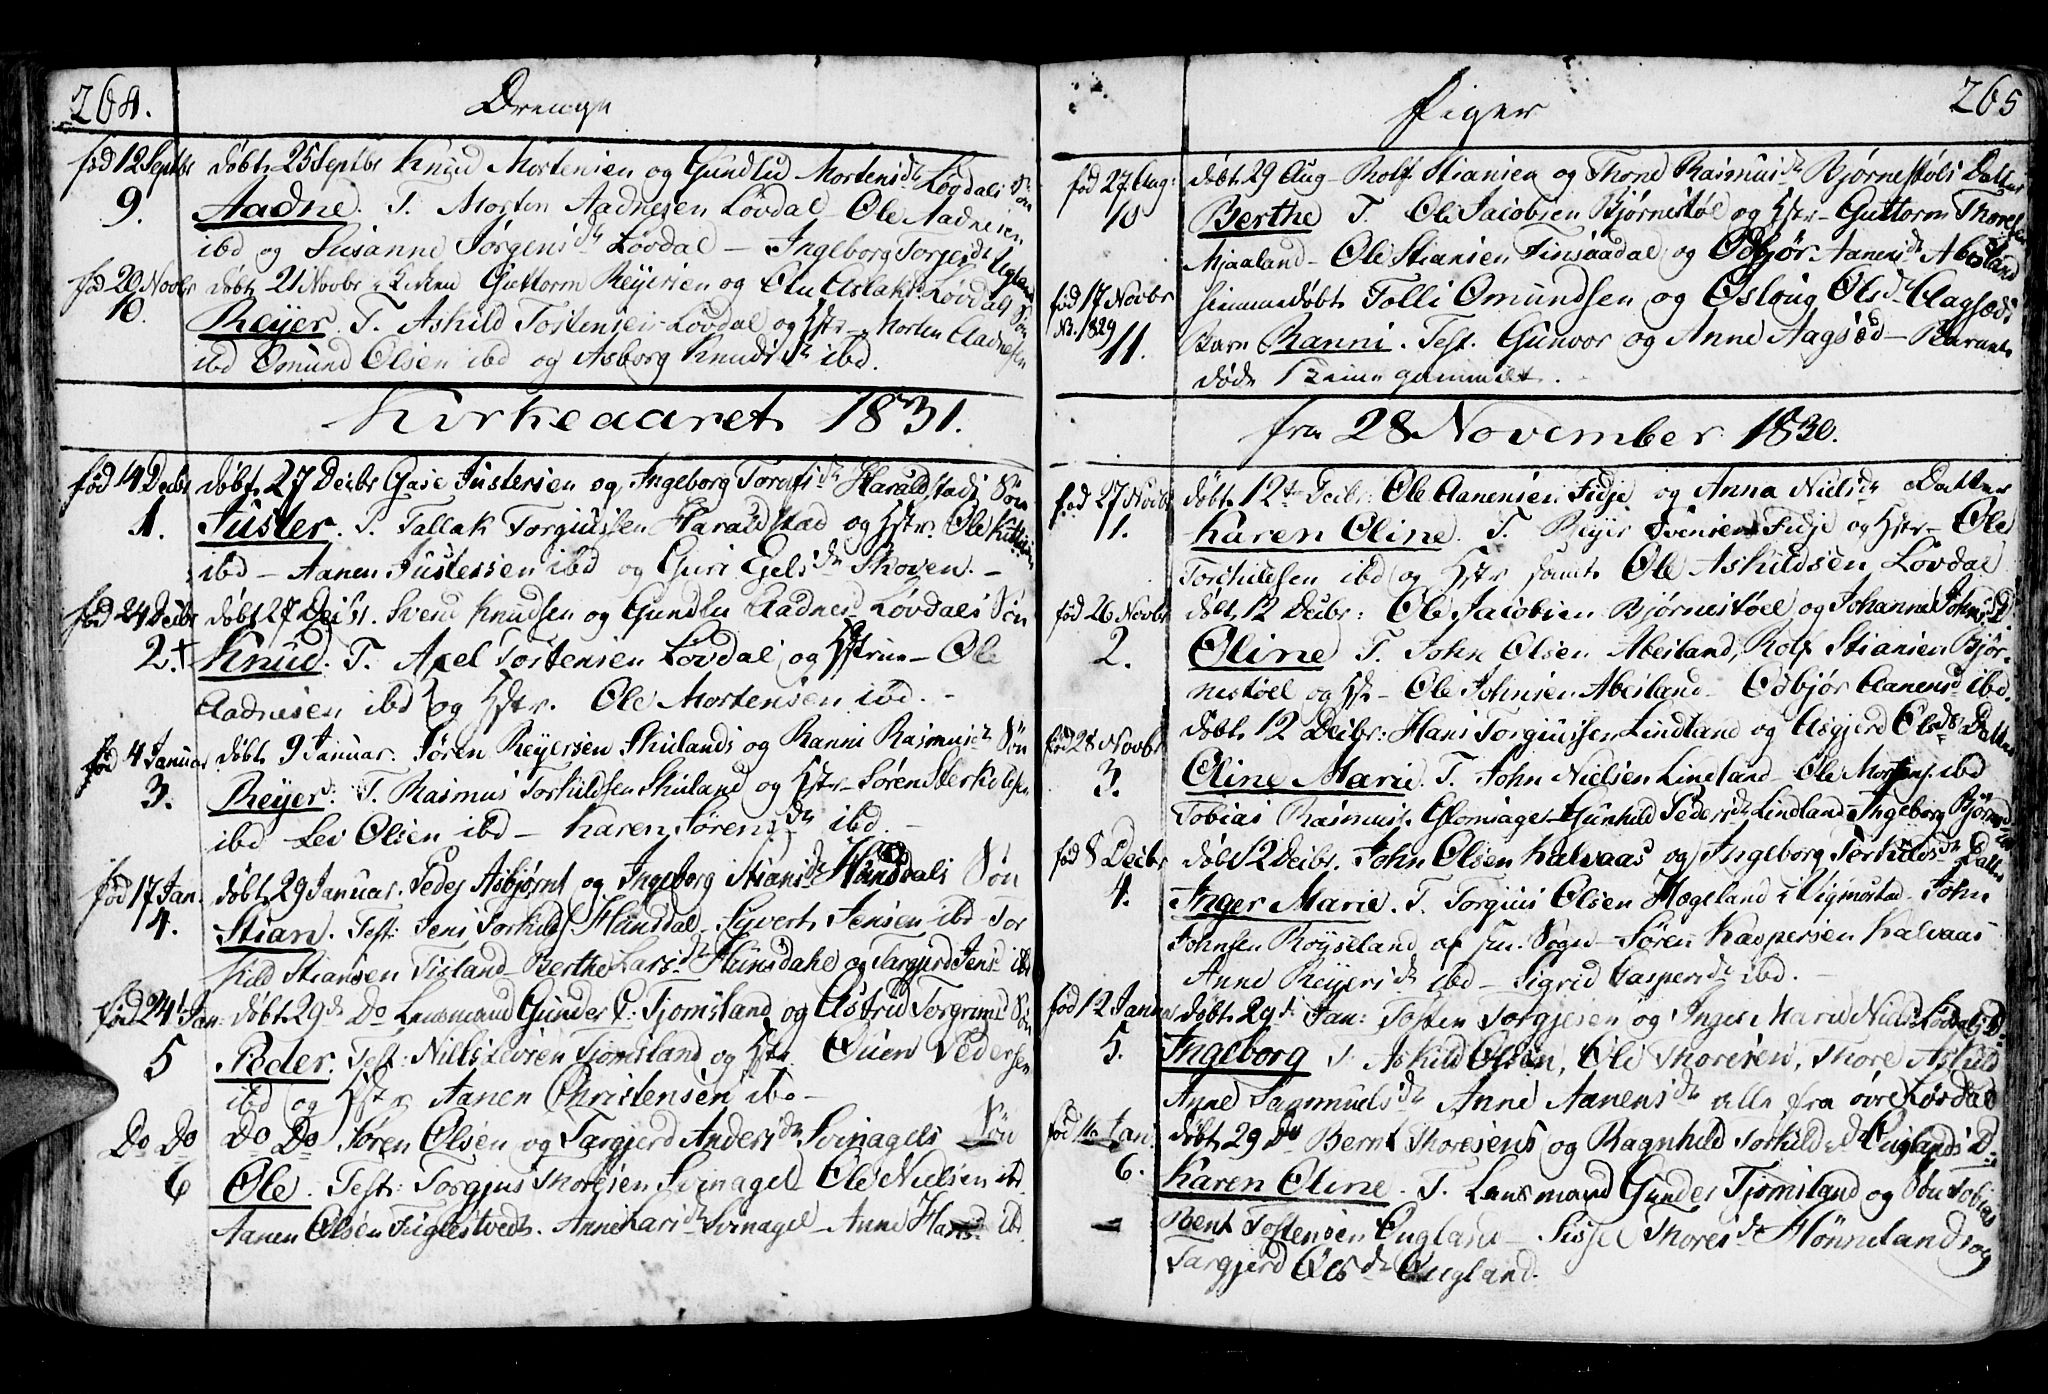 264.
Drenge
fød 12 Septbr døbt 25 Septbr Knud Mortensen og Gundlid Mortensdr Løvdals Søn
9. Aadne. T. Morten Aadnesen Løvdal - Ole Aadnesen
ibd og Susanne Jørgensdr Løvdal - Ingeborg Torjesdr Ugland
fød 20 Novbr døbt 21 Novbr i Kirken Guttorm Reyersen og Aslaksdr Løvdals Søn
10. Reyer. T. Askild Tostensen Løvdal og Hstr - Morten Aadnesen
ibd Omund Olsen ibd og Asborg Knudsdr ibd.
Kirkeaaret 1831.
fød 14 Decbr døbt 27 Decbr Aase Justersen og Ingeborg Haraldstads Søn
1. Juster. T. Tallak Torgiussen Haraldstad og Hstr. Ole
ibd - Aanen Justersen ibd og Guri Egelsdr Skoven. -
fød 24 Decbr døbt 27 Decbr. Svend Knudsen og Gundlu Aadnesd Løvdals Søn
2.+ Knud. T. Axel Tostensen Løvdal og Hstrue - Ole
Aadnesen ibd og Hstr. Ole Mortensen ibd. -
fød 4 Januar døbt 9 Januar. Søren Reyersen Skulands og Ranni Rasmusdr Søn
3. Reyer. T. Rasmus Torkildsen Skuland og Hstr - Søren
ibd Lev Olsen ibd - Karen Sørensdr ibd. -
fød 17 Jan. døbt 29 Januar. Peder Asbjørns og Ingeborg Stiansdr Hundsdals Søn
4. Stian. Test: Jens Torkilds. Hunsdal - Syvert Jensen ibd - Tor
kild Stiansen Tisland - Berthe Larsdr Hunsdahl og Targjerd Jensdr ibd
fød 24 Jan døbt 29de Do Lensmand Gunder P. Tjomsland og Astrid Torgrims Søn
5 Peder. Test: Nills Levsen Tjomsland og Hstr Ouen Pedersen
ibd og Hstr Aanen Christensen ibd -
Do Do Do Do Søren Olsen og Targjerd Andersdr Svinagels Søn
6 Ole. Test: Torgjus Thoresen Svinagel Ole Nielsen ibd
Aanen Olsen Figlestvedt. Anne Larsdr Svinagel - Anne Hansd ibd
Piger
265
fød 27 Aug: døbt 29 Aug - Rolf Stiansen og Thone Rasmusdr Bjørnestøls Datter
10 Berthe T. Ole Jacobsen Bjørnestøl og Hstr - Guttorm Thoresen
Mjaaland - Ole Stiansen Finsaadal og Odbjør Aanensdr Abesland
fød 17 Novbr hjemmedøbt Tolli Omundsen og Oslaug Olsdr Aagsæds
NB. 1829
11. Barn Ranni. Test. Gunvor og Anne Aagsæd - Barnet
døde gammelt.
fra 28 November 1830.
fød 27 Novbr døbt 12te Decbr: Ole Aanensen Fidje og Anna Nielsdr Datter
1. Karen Oline. T. Reyer Svensen Fidje og Hstr - Ole
Torkildsen ibd og Hstr samt Ole Askildsen Løvdal
fød 26 Novbr døbt 12 Decbr: Ole Jacobsen Bjørnestøel og Johanne Johnsd D.
2. Oline T. John Olsen Abesland, Rolf Stiansen Bjør-
nestøel og Hstr - Ole Johnsen Abesland - Odbjør Aanensd ibd.
fød 28 Novbr døbt 12 Decbr: Hans Torgiussen Lindland og Asgjerd Olsdr Datter
3. Oline Marie. T. John Nielsen Lindland - Ole Mortens. ibd
Tobias Rasmus. Glomsager - Gunhild Pedersdr Lindland - Ingeborg
fød 8 Decbr døbt 12 Decbr. John Olsen Kalvaas og Ingeborg Terkildsdr Datter
4. Inger Marie. T. Torgius Olsen Hægeland i Vigmostad - John
Johnsen Røyseland af Sogn - Søren Kaspersen Kalvaas
Anne Reyersdr ibd - Sigrid Caspersdr ibd. -
fød 12 Januar døbt 29de Jan: Tosten Torgjesen og Inger Marie Nielsd Løvdals D.
5. Ingeborg T. Askild Olsen, Ole Thoresen, Thore Askild
Anne Sagmundsdr Anne Aanensdr alle fra øvre Løvdal
fød 16 Jan. døbt 29 Do Bernt Thoresens og Ragnhild Torkildsdr Euglands D.
6. Karen Oline. T. Lensmand Gunder Tjomsland og Søn Tobias
Bent Tostensen Eugland - Sissel Thoresdr Hønneland og
Targjerd Olsdr Eugland.